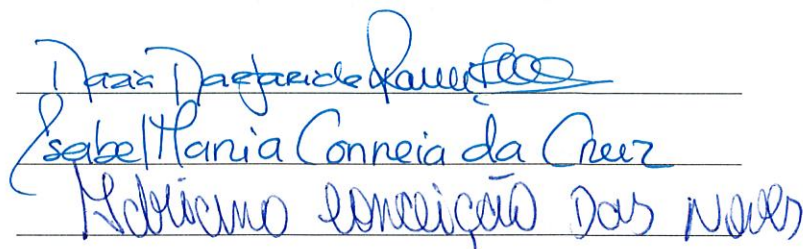 Maria Margarida
Isabel Maria Correia da Cruz
Adriano Conceição Das Neves